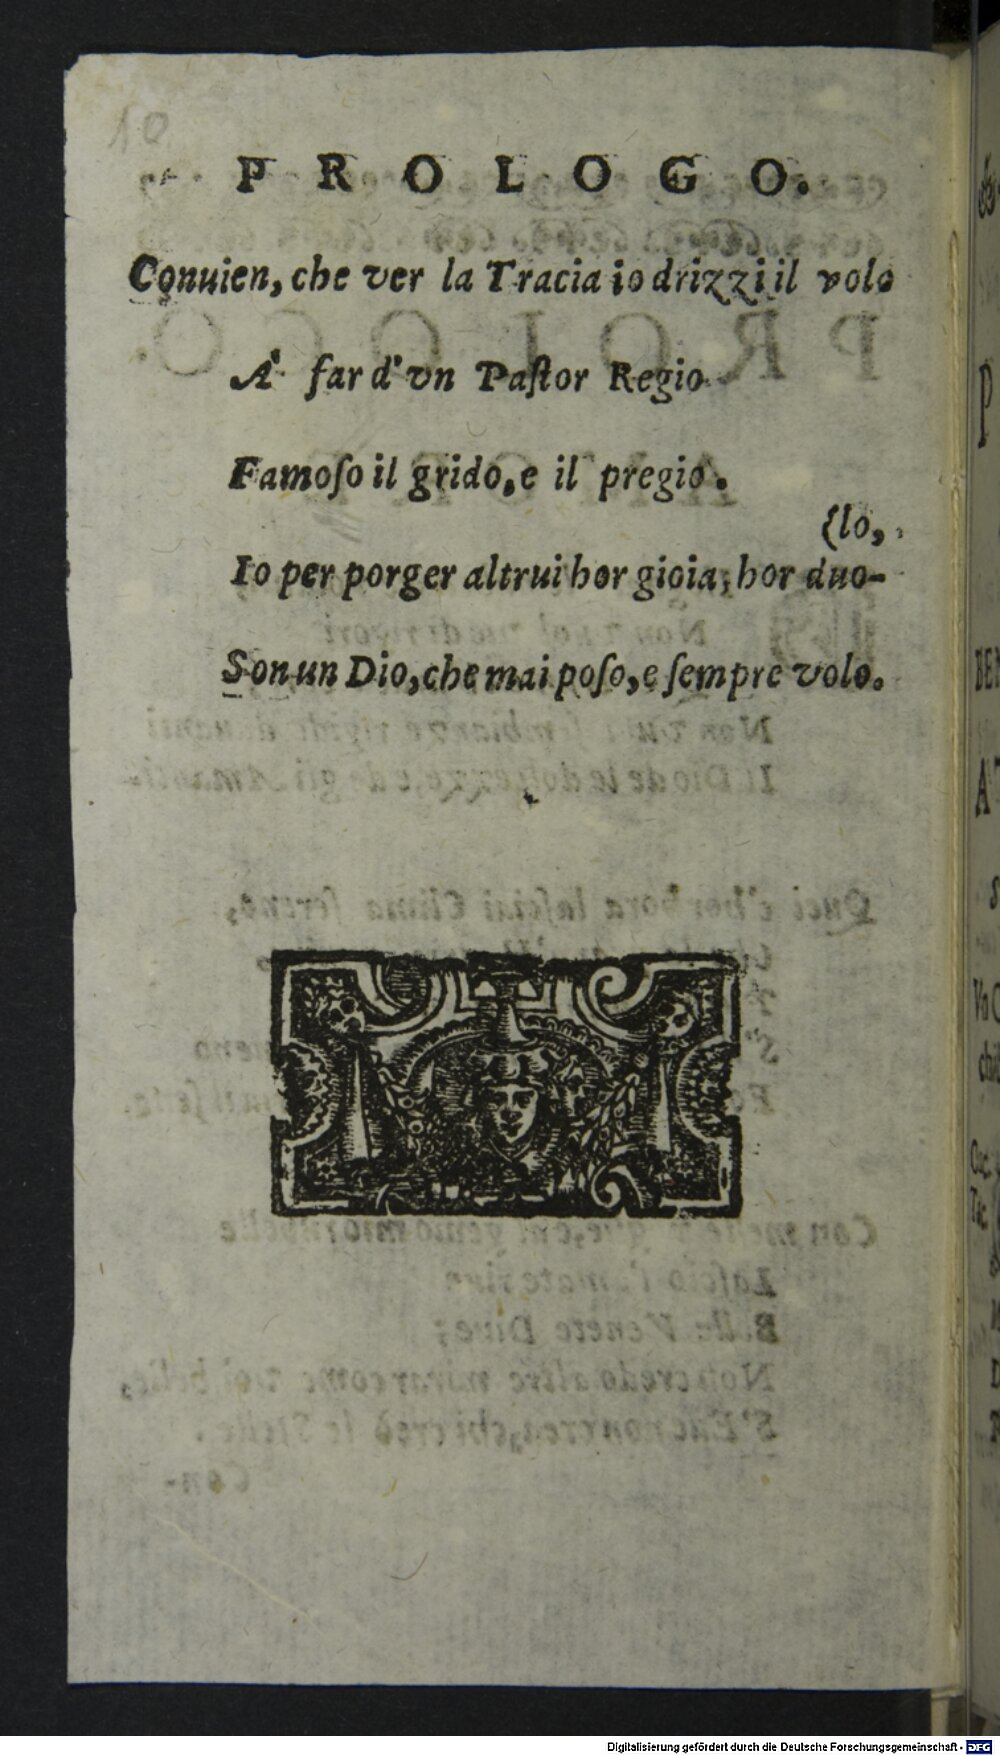 10
PROLOGO.
Conuien, che ver la Tracia io drizzi il volo
A' far d'vn Paſtor Regio
Famoſo il grido, e il pregio.
(lo,
Io per porger altrui hor gioia, hor duo-
Son un Dio, che mai poſo, e ſempre volo.
Digitalisierung gefördert durch die Deutsche Forschungsgemeinschaft - DFG